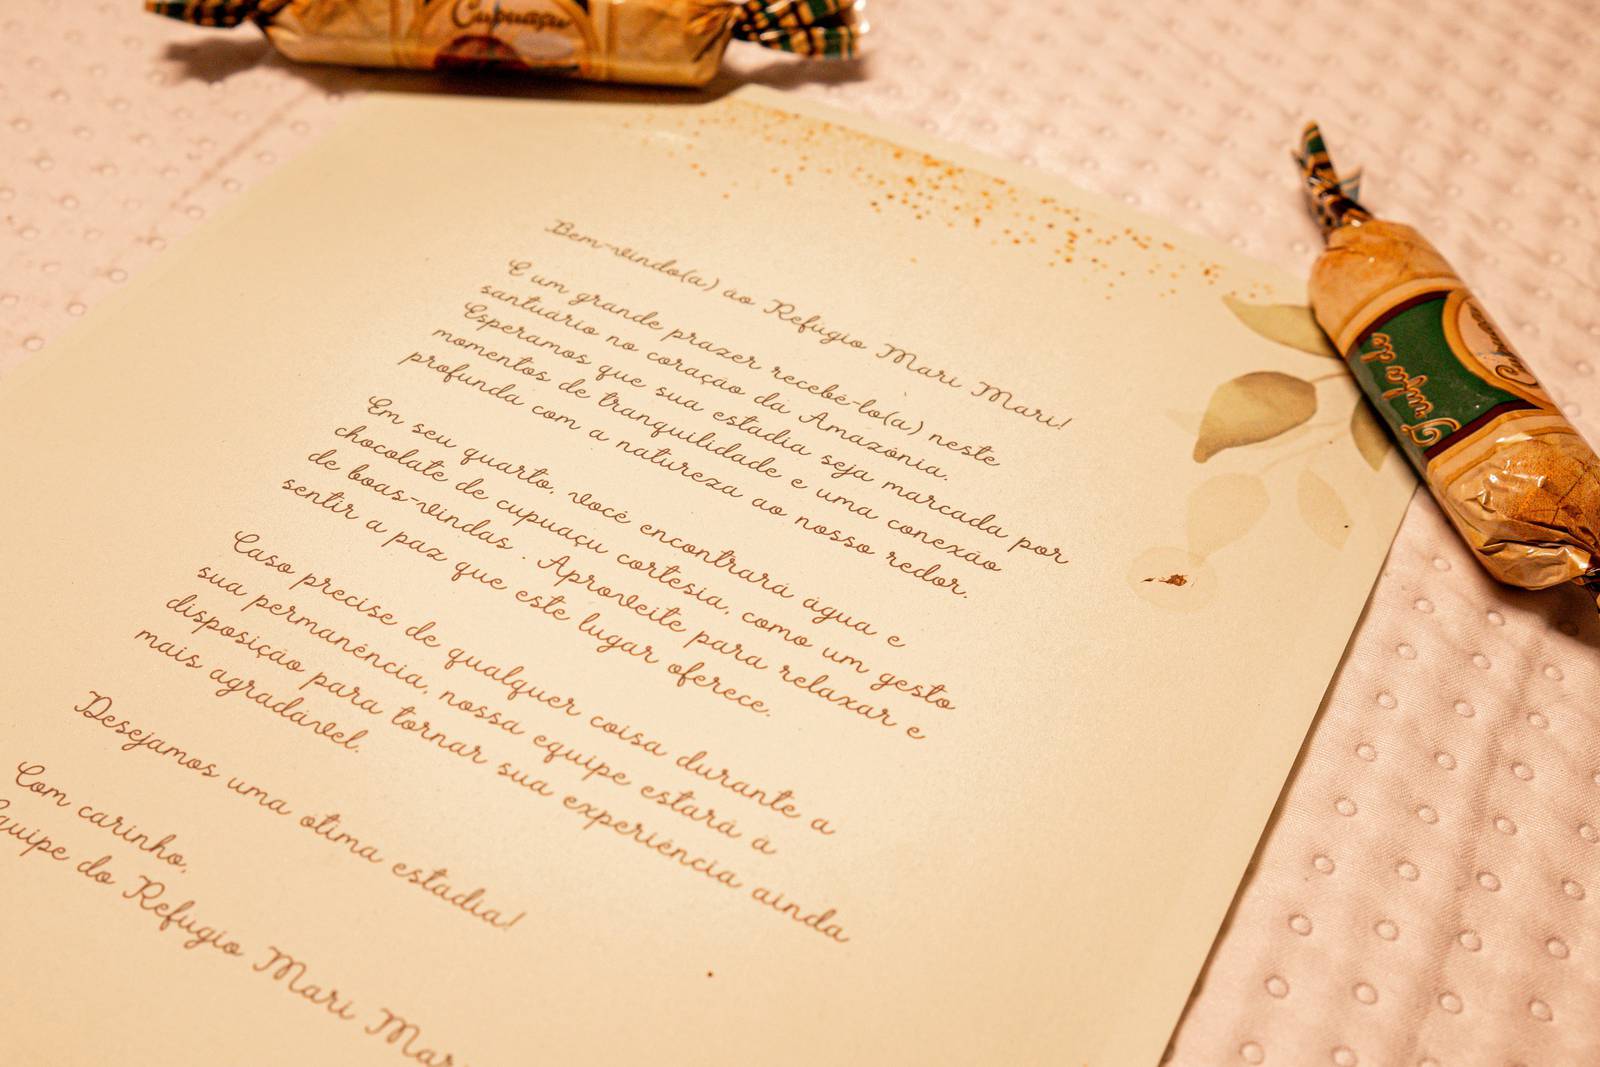 Cupuaçu
Bem-vindo(a) ao Refúgio Mari Mari!
É um grande prazer recebê-lo(a) neste
santuário no coração da Amazônia.
Esperamos que sua estadia seja marcada por
momentos de tranquilidade e uma conexão
profunda com a natureza ao nosso redor.
Em seu quarto, você encontrará água e
chocolate de cupuaçu cortesia, como um gesto
de boas-vindas . Aproveite para relaxar e
sentir a paz que este lugar oferece.
Caso precise de qualquer coisa durante a
sua permanência, nossa equipe estará à
disposição para tornar sua experiência ainda
mais agradável.
Desejamos uma ótima estadia!
Com carinho,
Equipe do Refúgio Mari Mari
Trufa de
Cupuaçu